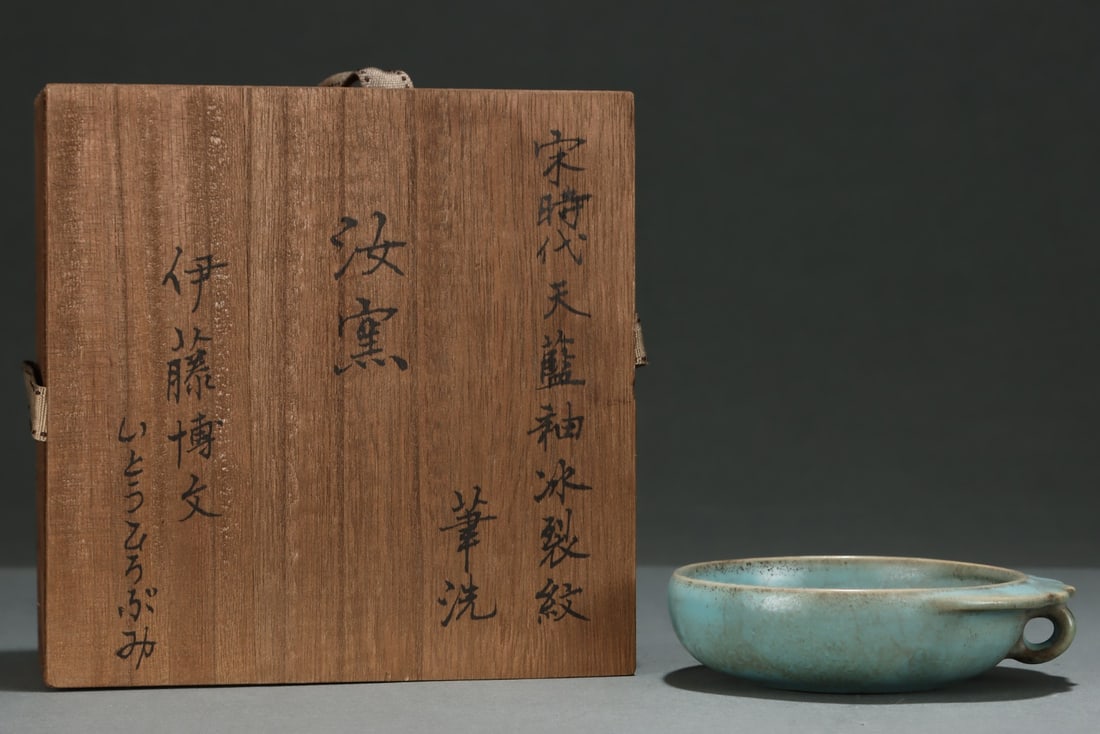 宋時代天藍釉冰裂紋
筆洗
汝窯
伊藤博文
いとうひろぶみ